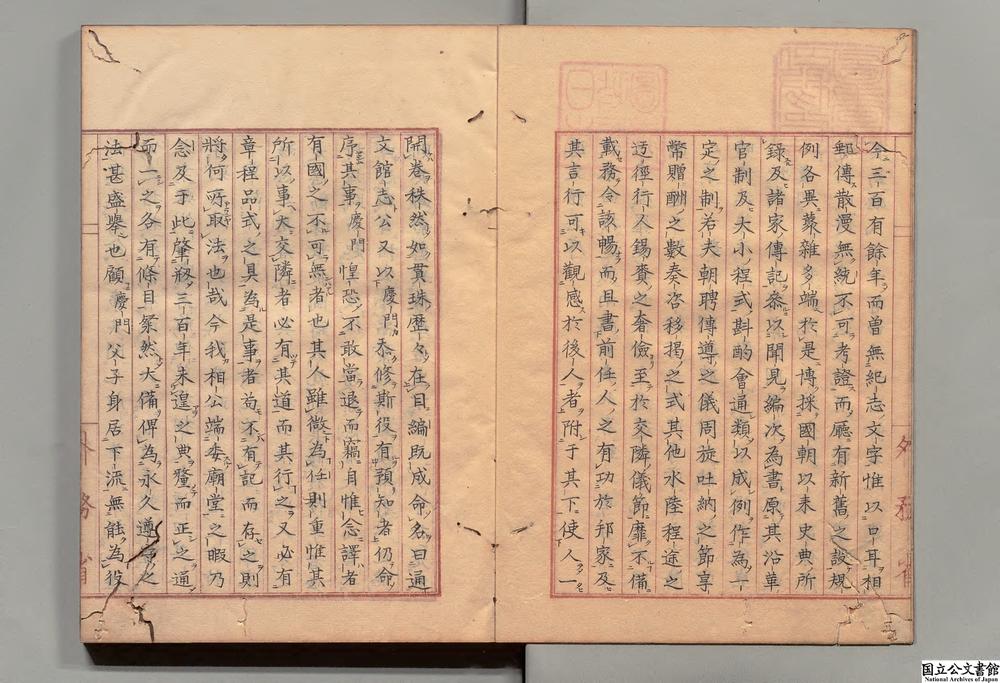 今三百有餘年而曽無紀志文字惟以口耳相
郵傳散漫無統不可考證而廳有新舊之設規
例各異蕞雜多端於是博採國朝以来史典所
錄及諸家傳記叅以聞見編次為書原其沿革
官制及大小程式斟酌會通類以成例作為一
定之制若夫朝聘傳導之儀周旋吐納之節享
幣贈酬之數奏咨移揭之式其他水陸程途之
迂徑行人錫賚之奢儉至於交隣儀節靡不備
載務令該暢而且書前任人之有功於邦家及
其言行可以觀感於後人者附于其下使人一
開卷秩然如貫珠歷々在目編既成命名曰通
文館志公又以慶門忝修斯役有預知者仍命
序其事慶門惶恐不敢當退而竊自惟念譯者
有國之不可無者也其人雖微為任則重惟其
所以事大交隣者必有其道而其行之又必有
章程品式之具為是事者苟不有記而存之則
將何所取法也哉今我相公端委廟堂之暇乃
念及于此肇剏三百年未遑之典釐而正之通
而一之各有條目粲然大備俾為永久遵守之
法甚盛舉也顧慶門父子身居下流無能為役
外務省
外務省
国立公文書館
National Archives of Japan